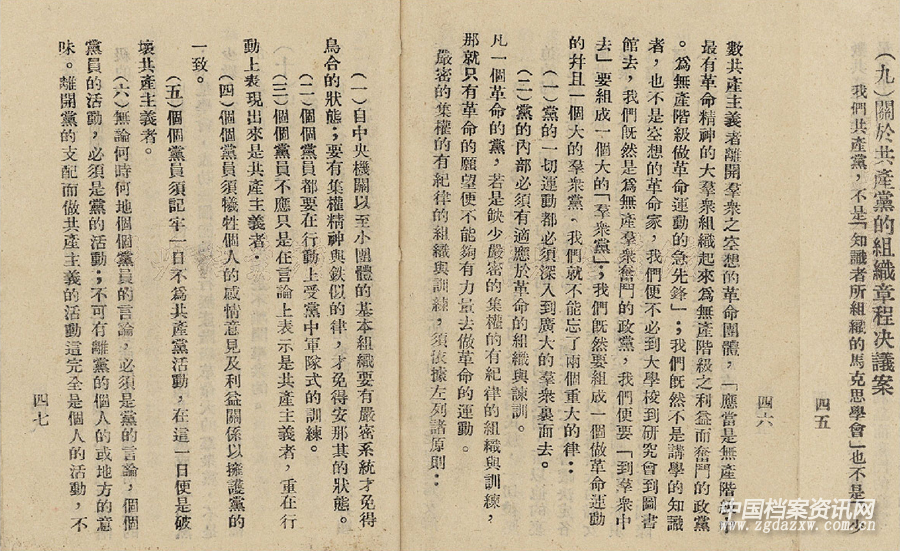 （九）關於共產黨的組織章程决議案
我們共產黨，不是「知識者所組織的馬克思學會」也不是
四五
數共產主義者離開羣衆之空想的革命團體，「應當是無產階
最有革命精神的大羣衆組織起來爲無產階級之利益而奮鬥的政黨
。爲無產階級做革命運動的急先鋒」；我們旣然不是講學的知識
者，也不是空想的革命家，我們便不必到大學梭到研究會到圖書
館去，我們旣然是爲無產羣衆奮鬥的政黨，我們便要「到羣衆中
去」要組成一個大的「羣衆黨」；我們旣然要組成一個做革命運動
的并且一個大的羣衆黨，我們就不能忘了兩個重大的律：
（一）黨的一切運動都必須深入到廣大的羣衆裏面去。
（二）黨的內部必須有適應於革命的組織與訓。
凡一個革命的黨，若是缺少嚴密的集權的有紀律的組織與訓練，
那就只有革命的願望便不能够有力量去做革命的運動。
嚴密的集權的有紀律的組織與訓練，須依據左列諸原則：
四六
（一）自中央機關以至小團體的基本組織要有嚴密系統才免得
烏合的狀態；要有集權精神與鉄似的律，才免得安那其的狀態。
（二）個個黨員都要在行動上受黨中軍隊式的訓練。
（三）個個黨員不應只是在言論上表示是共產主義者，重在行
動上表現出來是共產主義者。
（四）個個黨員須犧牲個人的感情意見及利益關係以擁護黨的
一致。
（五）個個黨員須記牢一日不爲共產黨活動，在這一日便是破
壞共產主義者。
（六）無論何時何地個個黨員的言論，必須是黨的言論，個個
黨員的活動，必須是黨的活動；不可有離黨的個人的或地方的意
味。離開黨的支配而做共產主義的活動這完全是個人的活動，不
四七
中国档案资讯网
www.zgdazxw.com.cn